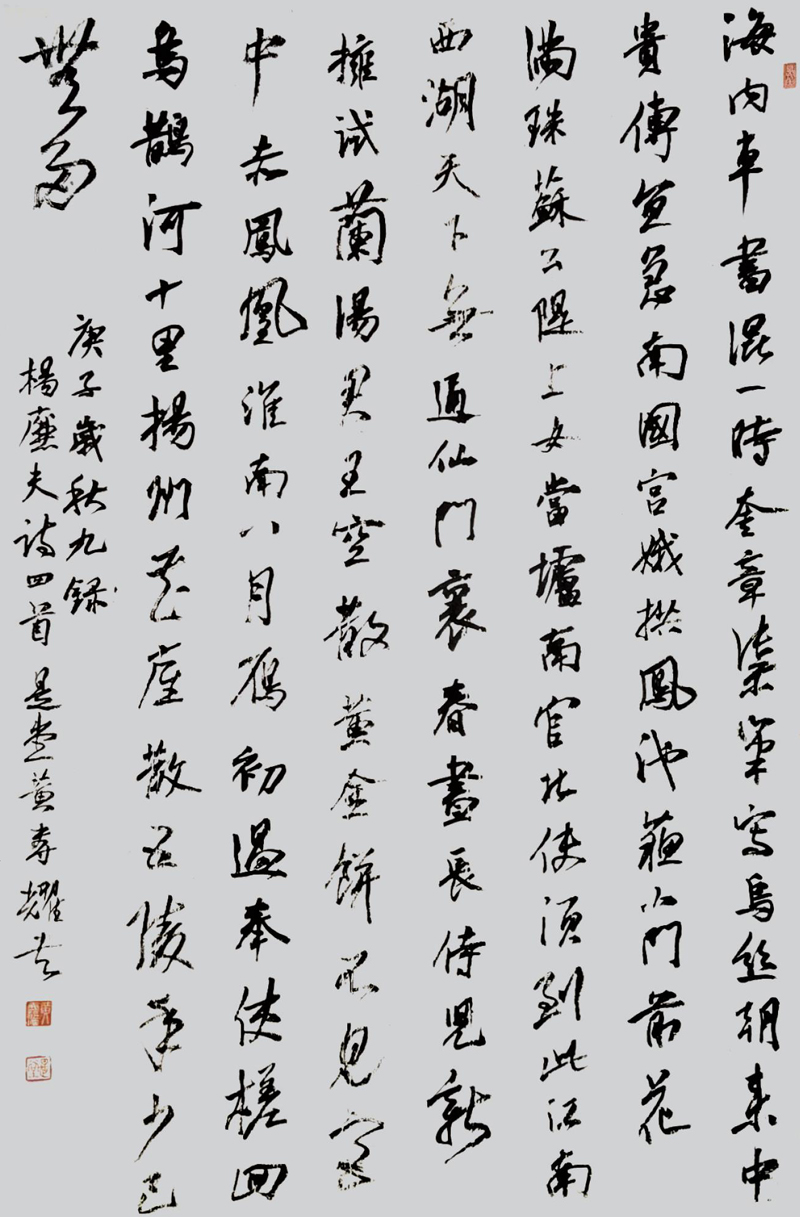 海内車書混一時奎章染筆寫烏絲朝來中
貴傳宣急南國宮娥拱鳳池蘇小門前花
滿珠蘇公隄上女當壚南官北使須到此江南
西湖天下無通仙門裏春晝長侍兒新
擁試蘭湯君王空散黃金餅不見宮
中赤鳳凰淮南八月雁初過奉使槎回
烏鵲河十里揚州花座散召陵年少已
無多
庚子歲秋九錄
楊廉夫詩四首是堂黃壽耀書